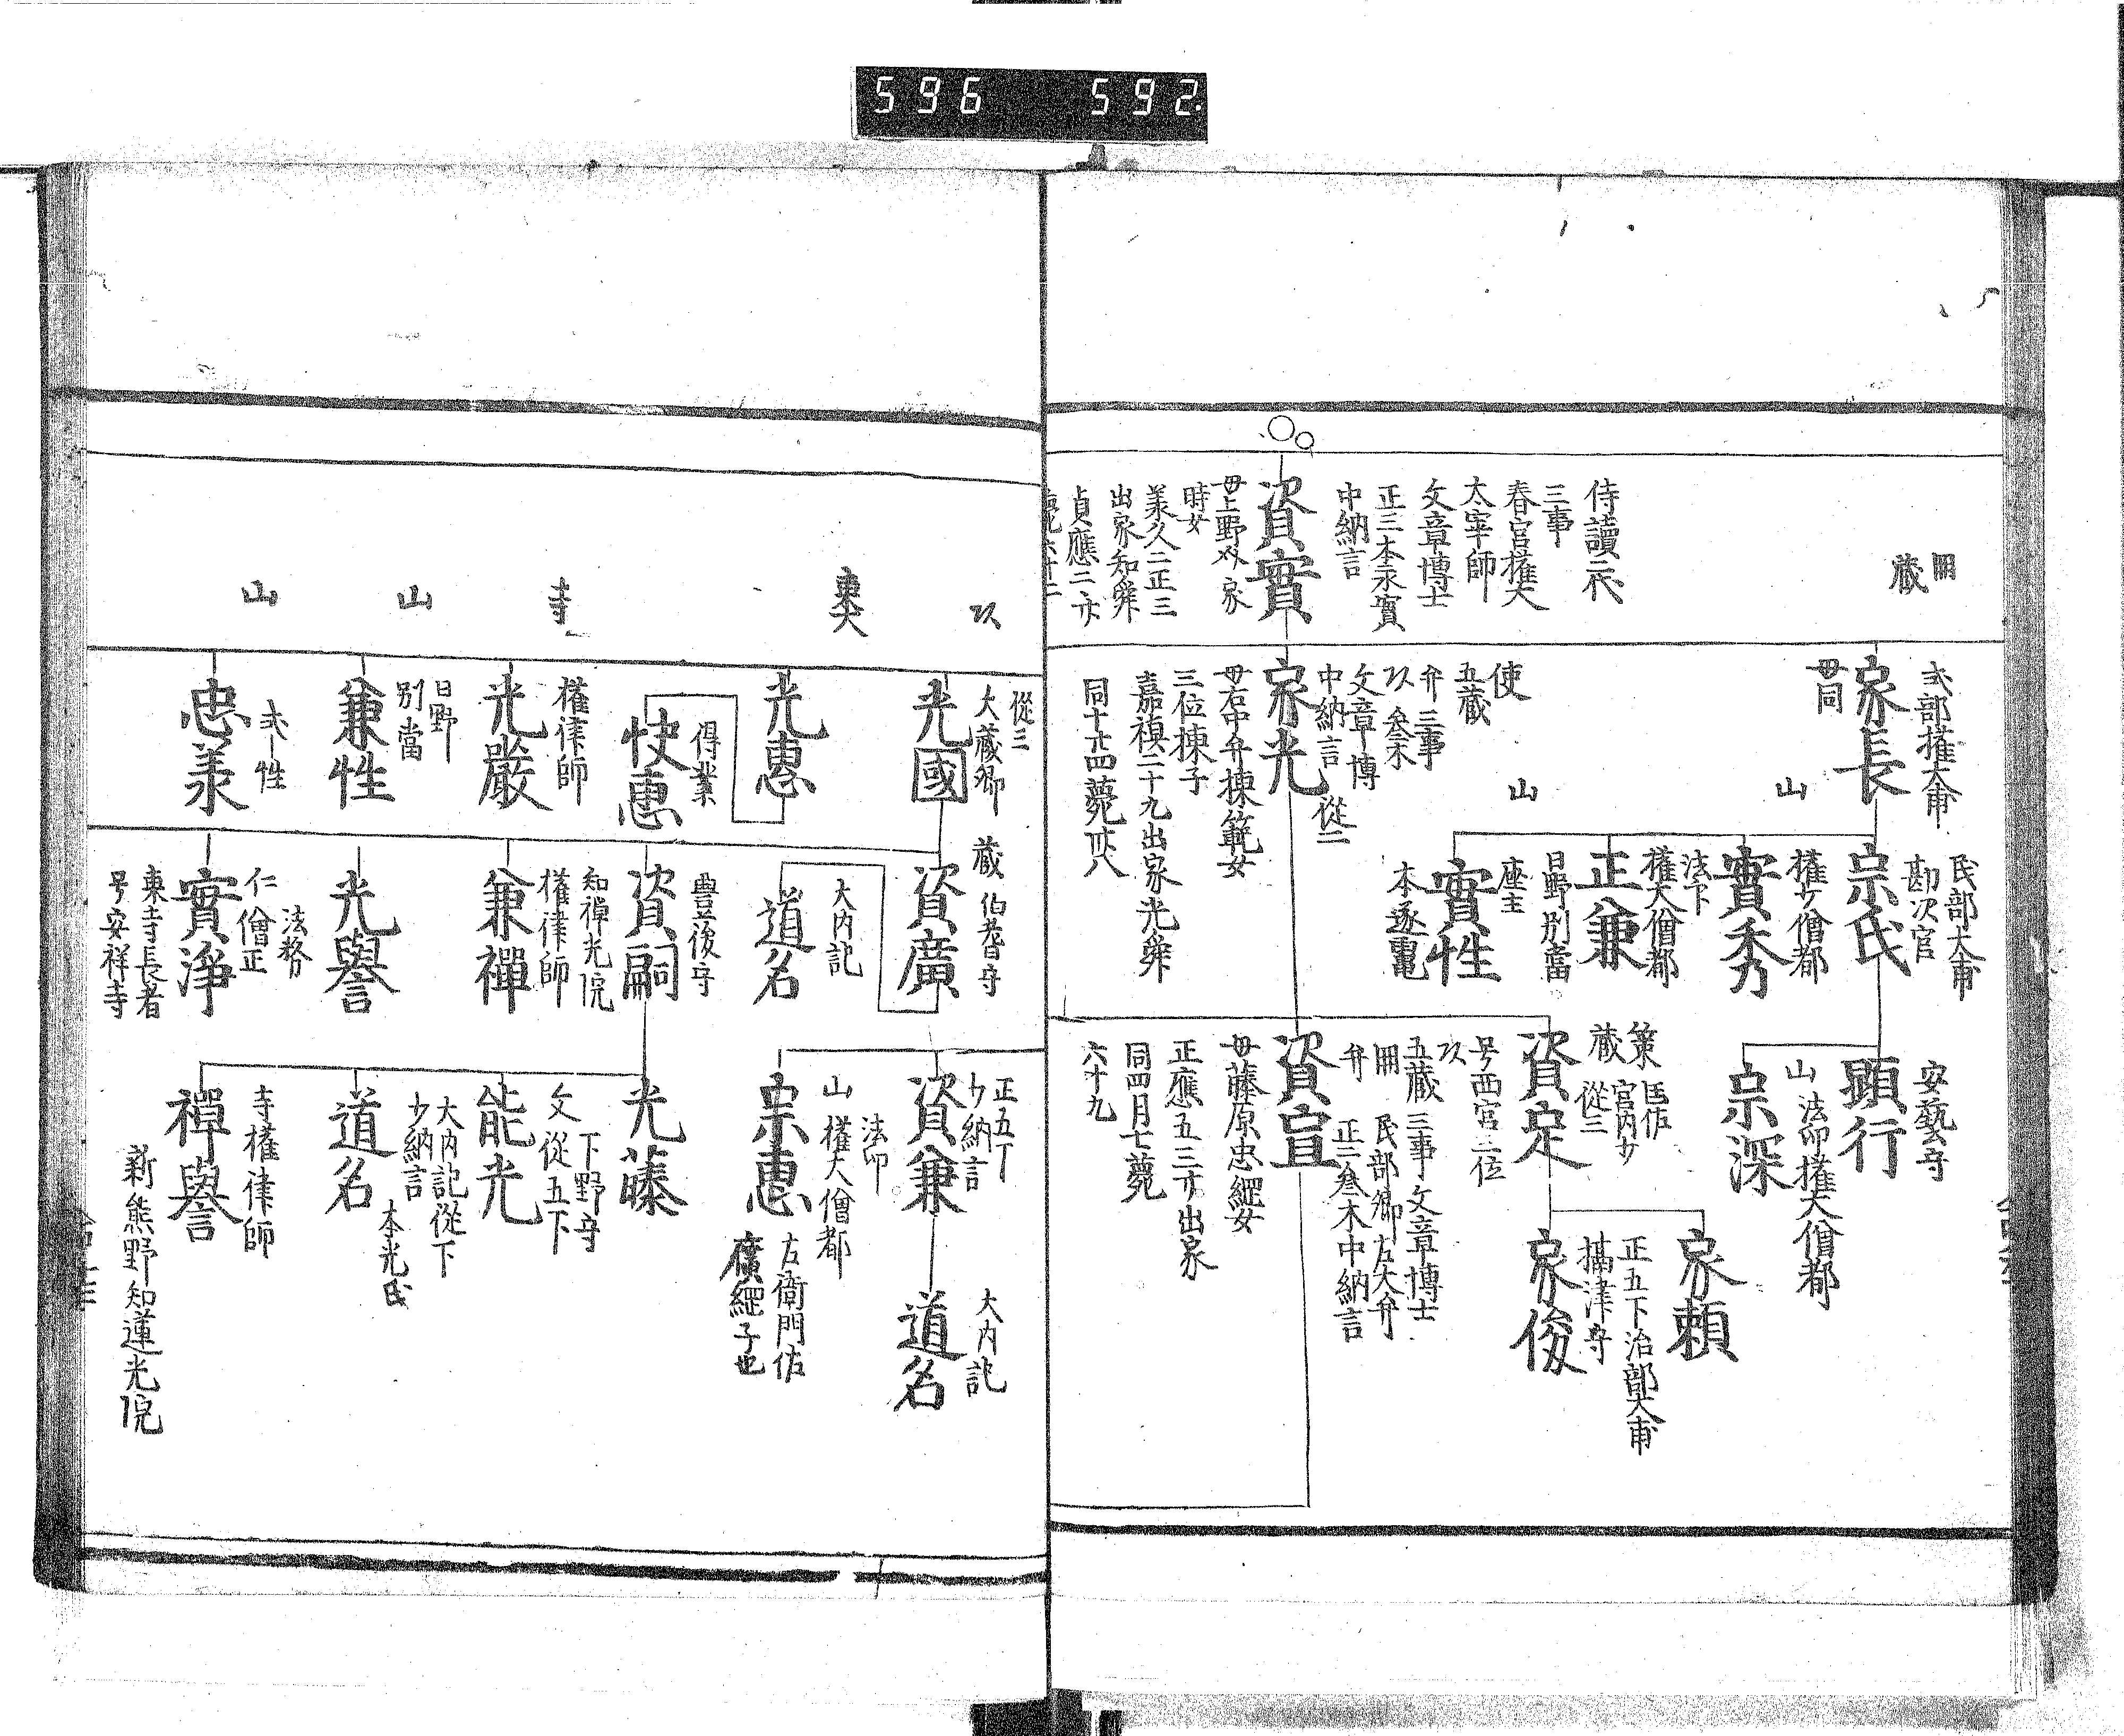 596 592
侍讀示
三事
春宮權大
太宰師
文章博士
正三本永實
中納言
資實
母上野父家
時女
出家知舜
蔵
式部權大甫
家長
母同
使
五蔵
弁三事
文章博
中納言
從二
家光
母右中弁棟範女
三位棟子
嘉禎二十九出家光舜
民部大甫
勘次官
宗氏
山
權少僧都
實秀
法下
權大僧都
正兼
日野別當
山
座主
實性
本逐電
安藝守
顕行
山法印權大僧都
宗深
策
蔵
宮内少
從三
資定
号西宮三位
正五下治部大甫
家頼
攝津守
家俊
五蔵三事文章博士
民部卿左大弁
弁
正二叄木中納言
資宣
母藤原忠綱女
正應五三廿出家
同四月七薨
六十九
從三
大蔵卿
光國
東大
光惠
得業
快惠
寺
權律師
光嚴
山
日野
別當
兼性
山
忠義
蔵
伯耆守
資廣
大内記
道名
豊後守
資嗣
知禅光院
權律師
兼禪
光譽
法務
仁僧正
實淨
東寺長者
号安祥寺
正五下
少納言
資兼
大内記
道名
法印
山權大僧都
宗惠
右衛門佐
廣綱子也
光藤
下野守
文從五下
能光
大内記從下
少納言
本光氏
道名
寺權律師
禪譽
新熊野知蓮光院